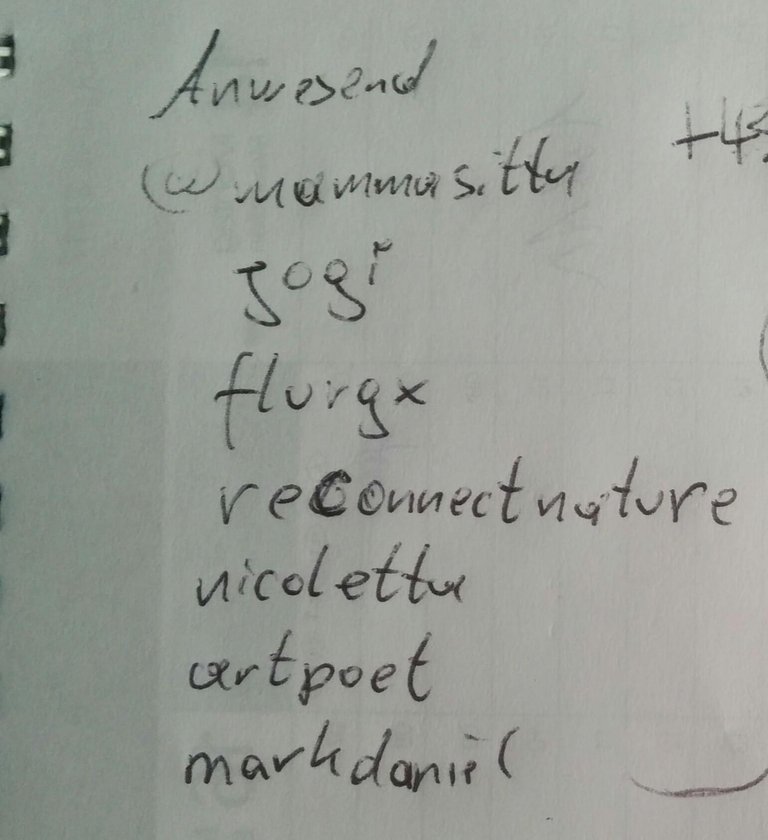 Anwesend
+43
@mammasitta
jogi
flurgx
reconnectnature
nicoletta
artpoet
markdaniel